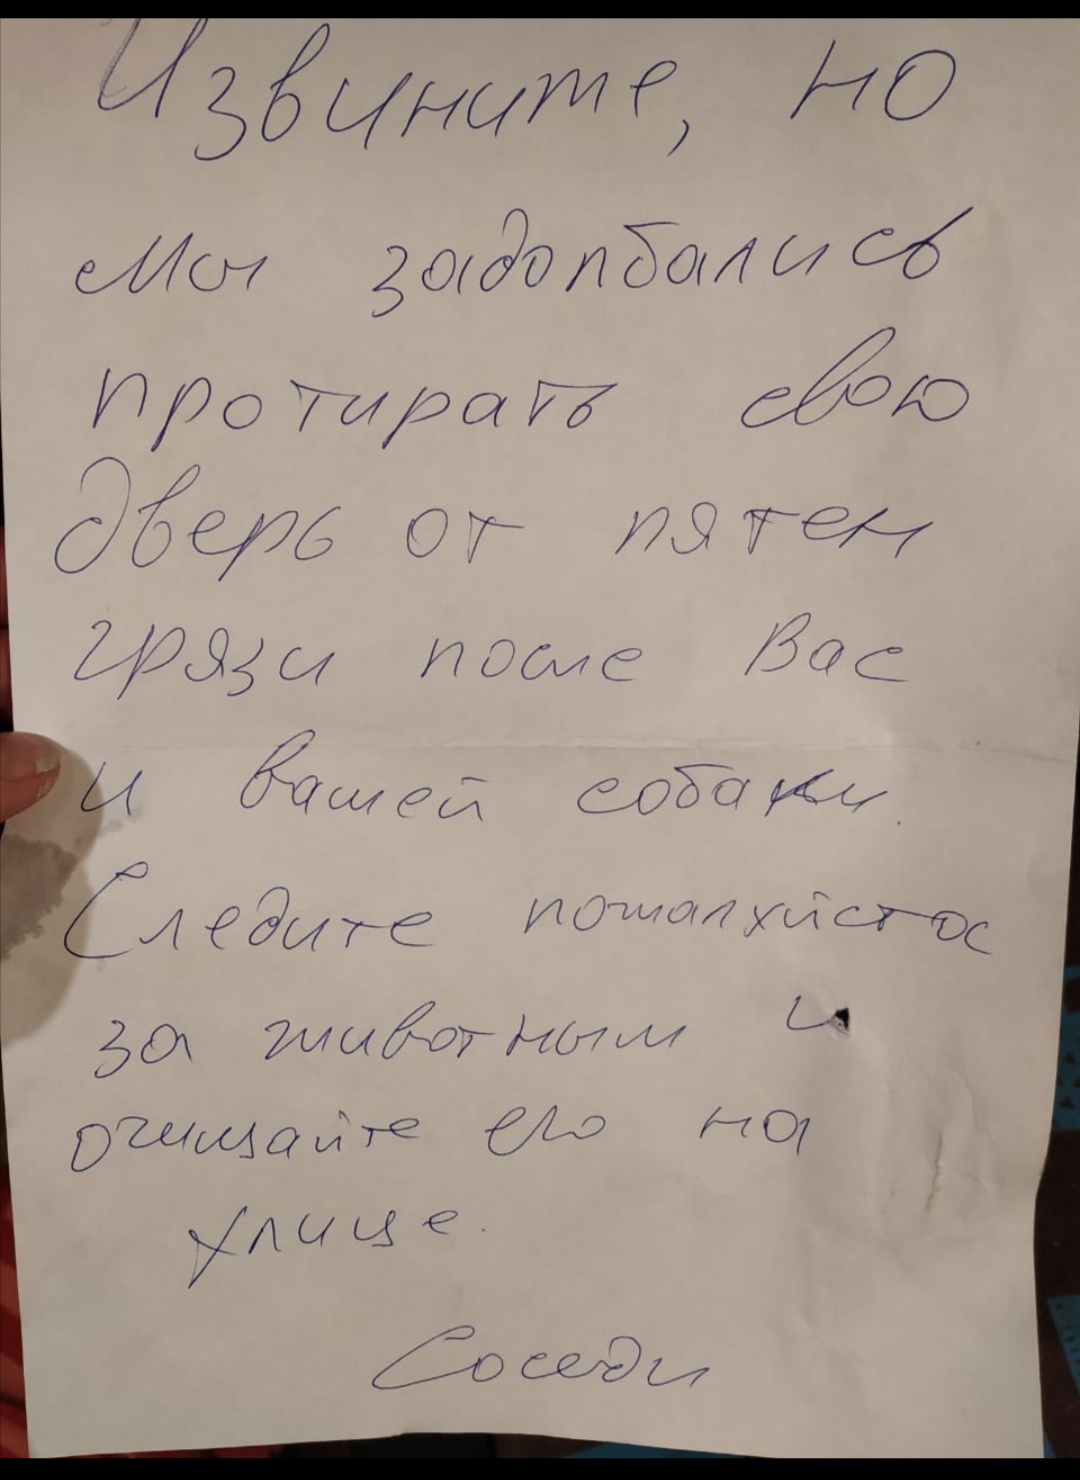 Извините, но
мы задолбались
протирать свою
дверь от пятен
грязи после Вас
и вашей собаки.
Следите пожалуйста
за животным и
очищайте его на
улице.
Соседи